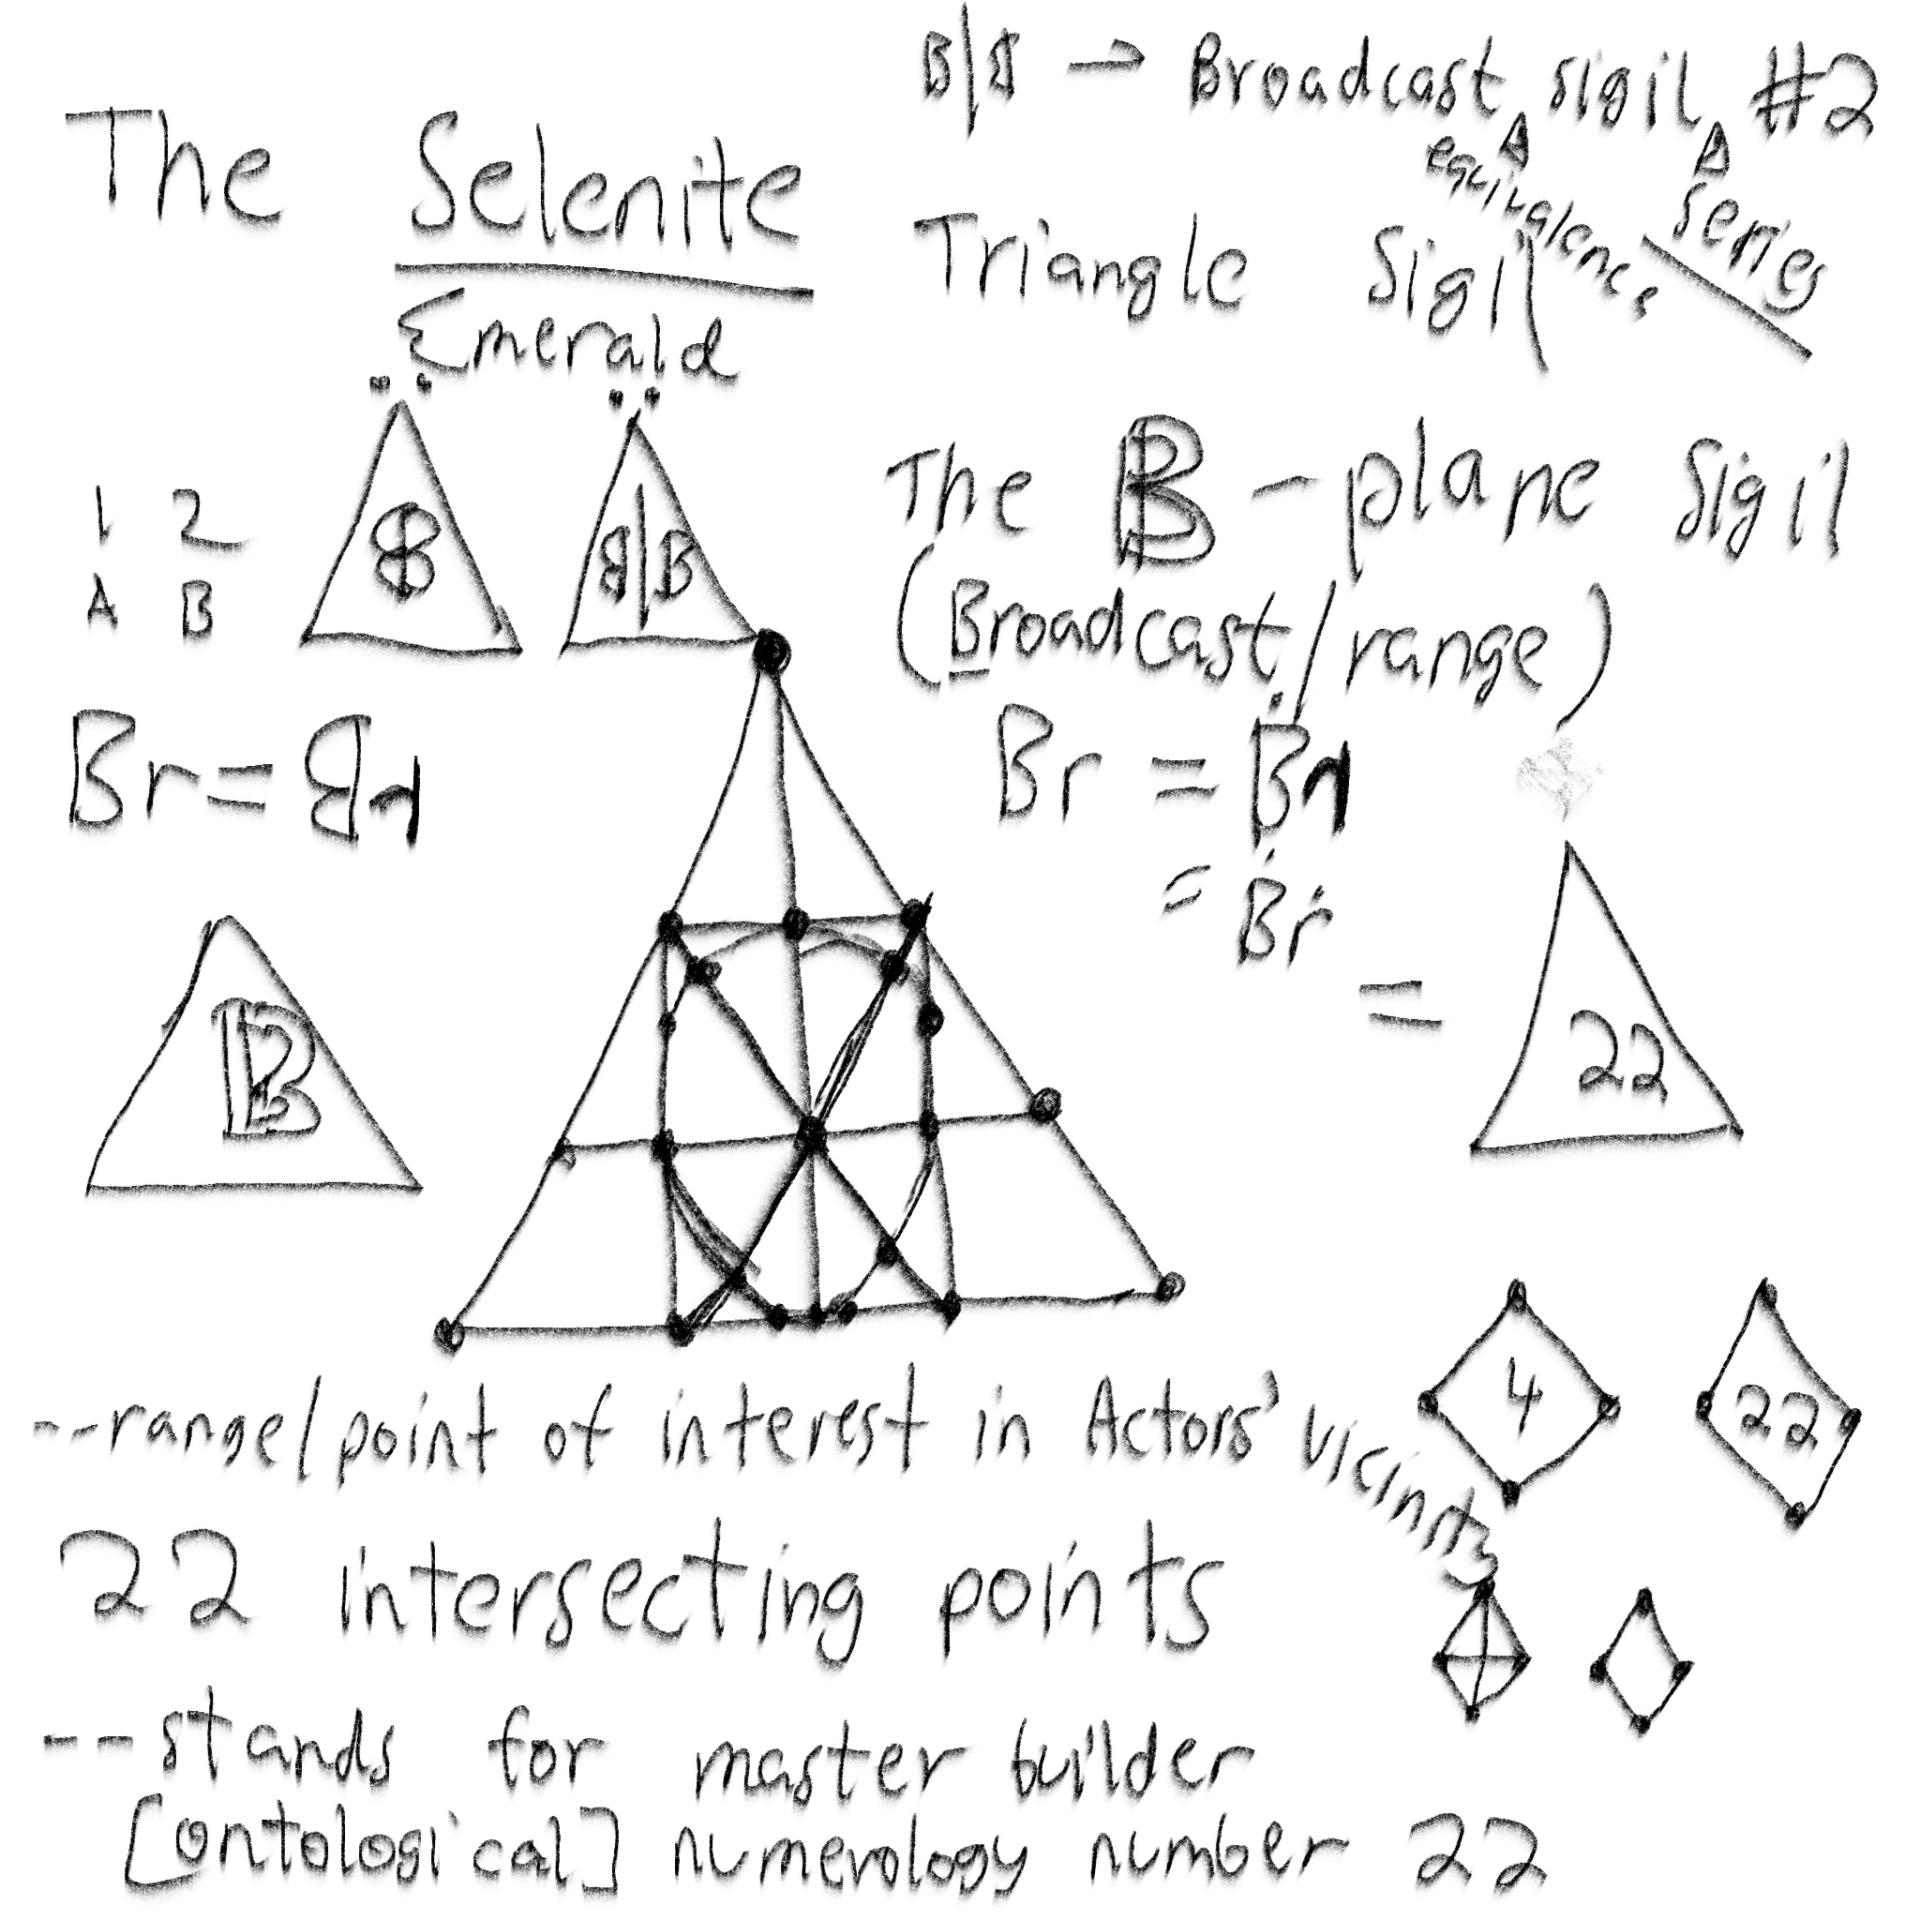 B|𐌁 → Broadcast sigil #2
equivalence series
The Selenite
Emerald
Triangle Sigil
The 𝔹-plane Sigil
(Broadcast/range)
1 2
A B
B|B
Br =
Br =
= Br
=
𝔹
22
4
22
--range/point of interest in Actors' vicinity
22 intersecting points
--stands for master builder
[ontological] numerology number 22